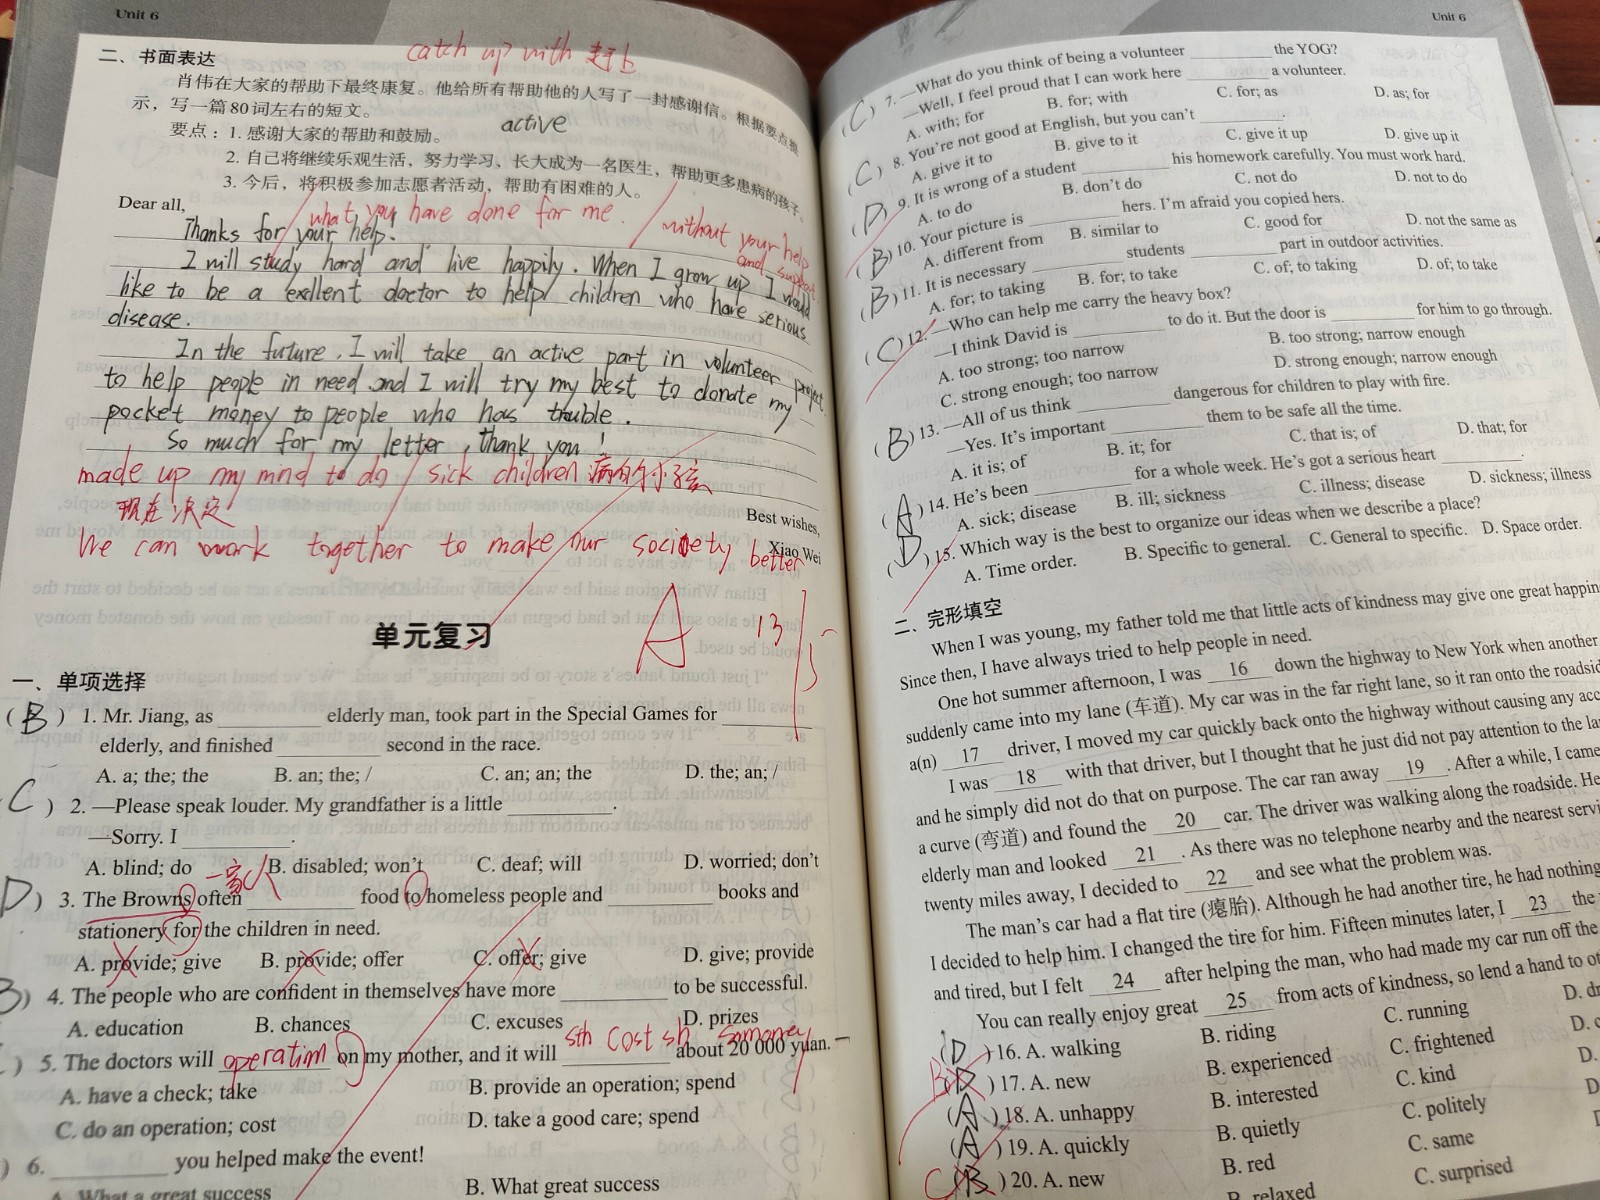 Unit 6
二、书面表达
catch up with 赶上
肖伟在大家的帮助下最终康复。他给所有帮助他的人写了一封感谢信。根据要点提
示，写一篇80词左右的短文。
active
要点：1. 感谢大家的帮助和鼓励。
2. 自己将继续乐观生活，努力学习、长大成为一名医生，帮助更多患病的孩子。
3. 今后，将积极参加志愿者活动，帮助有困难的人。
Dear all,
what you have done for me.
without your help
and support
Thanks for your help!
I will study hard and live happily. When I grow up I would
like to be a exllent doctor to help children who have serious
disease.
In the future, I will take an active part in volunteer project
to help people in need and I will try my best to donate my
pocket money to people who has trouble.
So much for my letter, thank you!
made up my mind to do / sick children 病的小孩
现在决定
Best wishes,
Xiao Wei
We can work together to make our society better
单元复习
A 13
一、单项选择
( B ) 1. Mr. Jiang, as ________ elderly man, took part in the Special Games for ________
elderly, and finished ________ second in the race.
A. a; the; the B. an; the; / C. an; an; the D. the; an; /
C ) 2. —Please speak louder. My grandfather is a little ________.
—Sorry. I ________.
A. blind; do B. disabled; won't C. deaf; will D. worried; don't
一家人
D ) 3. The Browns often ________ food to homeless people and ________ books and
stationery for the children in need.
A. provide; give B. provide; offer C. offer; give D. give; provide
B ) 4. The people who are confident in themselves have more ________ to be successful.
A. education B. chances C. excuses D. prizes
sth cost sb money
) 5. The doctors will ________ on my mother, and it will ________ about 20 000 yuan.
operation
A. have a check; take B. provide an operation; spend
C. do an operation; cost D. take a good care; spend
) 6. ________ you helped make the event!
A. What a great success B. What great success
Unit 6
( C ) 7. —What do you think of being a volunteer ________ the YOG?
—Well, I feel proud that I can work here ________ a volunteer.
A. with; for B. for; with C. for; as D. as; for
( C ) 8. You're not good at English, but you can't ________.
A. give it to B. give to it C. give it up D. give up it
( D ) 9. It is wrong of a student ________ his homework carefully. You must work hard.
A. to do B. don't do C. not do D. not to do
( B ) 10. Your picture is ________ hers. I'm afraid you copied hers.
A. different from B. similar to C. good for D. not the same as
( B ) 11. It is necessary ________ students ________ part in outdoor activities.
A. for; to taking B. for; to take C. of; to taking D. of; to take
( C ) 12. —Who can help me carry the heavy box?
—I think David is ________ to do it. But the door is ________ for him to go through.
A. too strong; too narrow B. too strong; narrow enough
C. strong enough; too narrow D. strong enough; narrow enough
( B ) 13. —All of us think ________ dangerous for children to play with fire.
—Yes. It's important ________ them to be safe all the time.
A. it is; of B. it; for C. that is; of D. that; for
( A ) 14. He's been ________ for a whole week. He's got a serious heart ________.
A. sick; disease B. ill; sickness C. illness; disease D. sickness; illness
( D ) 15. Which way is the best to organize our ideas when we describe a place?
A. Time order. B. Specific to general. C. General to specific. D. Space order.
二、完形填空
When I was young, my father told me that little acts of kindness may give one great happin
Since then, I have always tried to help people in need.
One hot summer afternoon, I was 16 down the highway to New York when another
suddenly came into my lane (车道). My car was in the far right lane, so it ran onto the roadsid
a(n) 17 driver, I moved my car quickly back onto the highway without causing any acc
I was 18 with that driver, but I thought that he just did not pay attention to the la
and he simply did not do that on purpose. The car ran away 19 . After a while, I came
a curve (弯道) and found the 20 car. The driver was walking along the roadside. He
elderly man and looked 21 . As there was no telephone nearby and the nearest servi
twenty miles away, I decided to 22 and see what the problem was.
The man's car had a flat tire (瘪胎). Although he had another tire, he had nothing
I decided to help him. I changed the tire for him. Fifteen minutes later, I 23 the
and tired, but I felt 24 after helping the man, who had made my car run off the
You can really enjoy great 25 from acts of kindness, so lend a hand to ot
( D ) 16. A. walking B. riding C. running D. dr
B ( D ) 17. A. new B. experienced C. frightened D. c
( A ) 18. A. unhappy B. interested C. kind D.
( A ) 19. A. quickly B. quietly C. politely D
C ( B ) 20. A. new B. red C. same
B. relaxed C. surprised